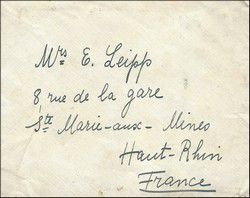 Mrs E. Leipp
8, rue de la gare
Ste Marie-aux-Mines
Haut-Rhin
France